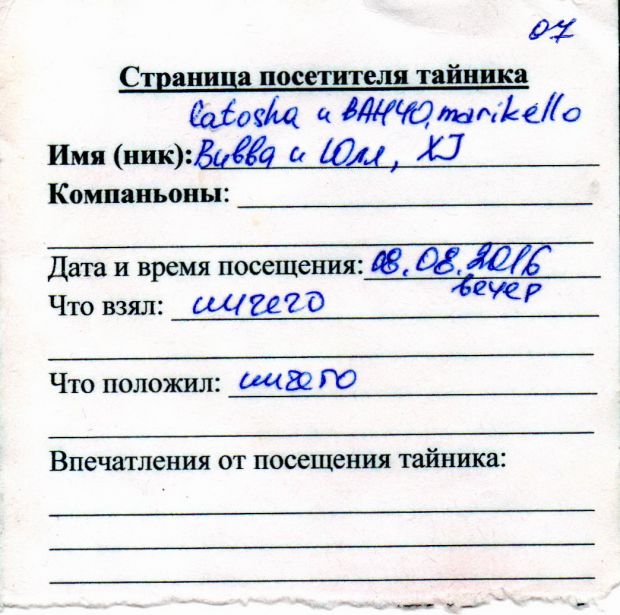 07
Страница посетителя тайника
Catosha и ВАНЧО, marikello
Имя (ник): Вивва и Юлл, XJ
Компаньоны:
Дата и время посещения: 08.08.2016
вечер
Что взял: ничего
Что положил: ничего
Впечатления от посещения тайника: